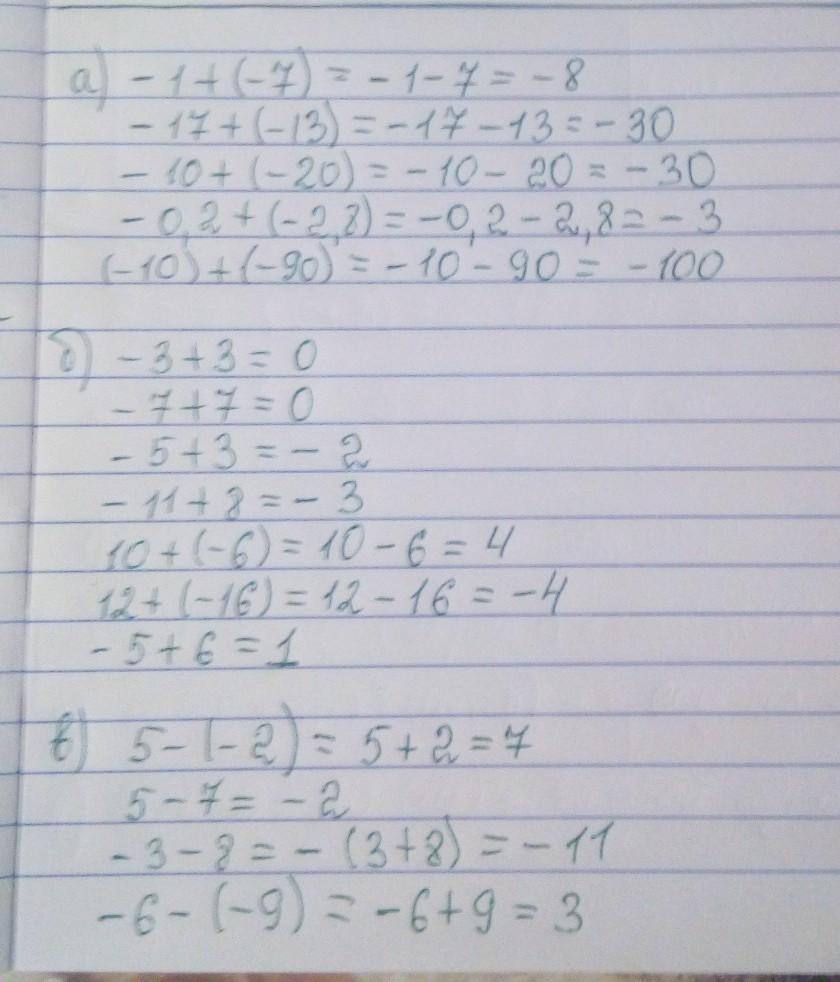 а) - 1 + (-7) = - 1 - 7 = - 8
- 17 + (-13) = - 17 - 13 = - 30
- 10 + (-20) = - 10 - 20 = - 30
- 0,2 + (-2,8) = -0,2 - 2,8 = - 3
(-10) + (-90) = - 10 - 90 = - 100
б) - 3 + 3 = 0
- 7 + 7 = 0
- 5 + 3 = - 2
- 11 + 8 = - 3
10 + (-6) = 10 - 6 = 4
12 + (-16) = 12 - 16 = -4
- 5 + 6 = 1
в) 5 - (-2) = 5 + 2 = 7
5 - 7 = - 2
- 3 - 8 = - (3+8) = - 11
-6 - (-9) = -6 + 9 = 3